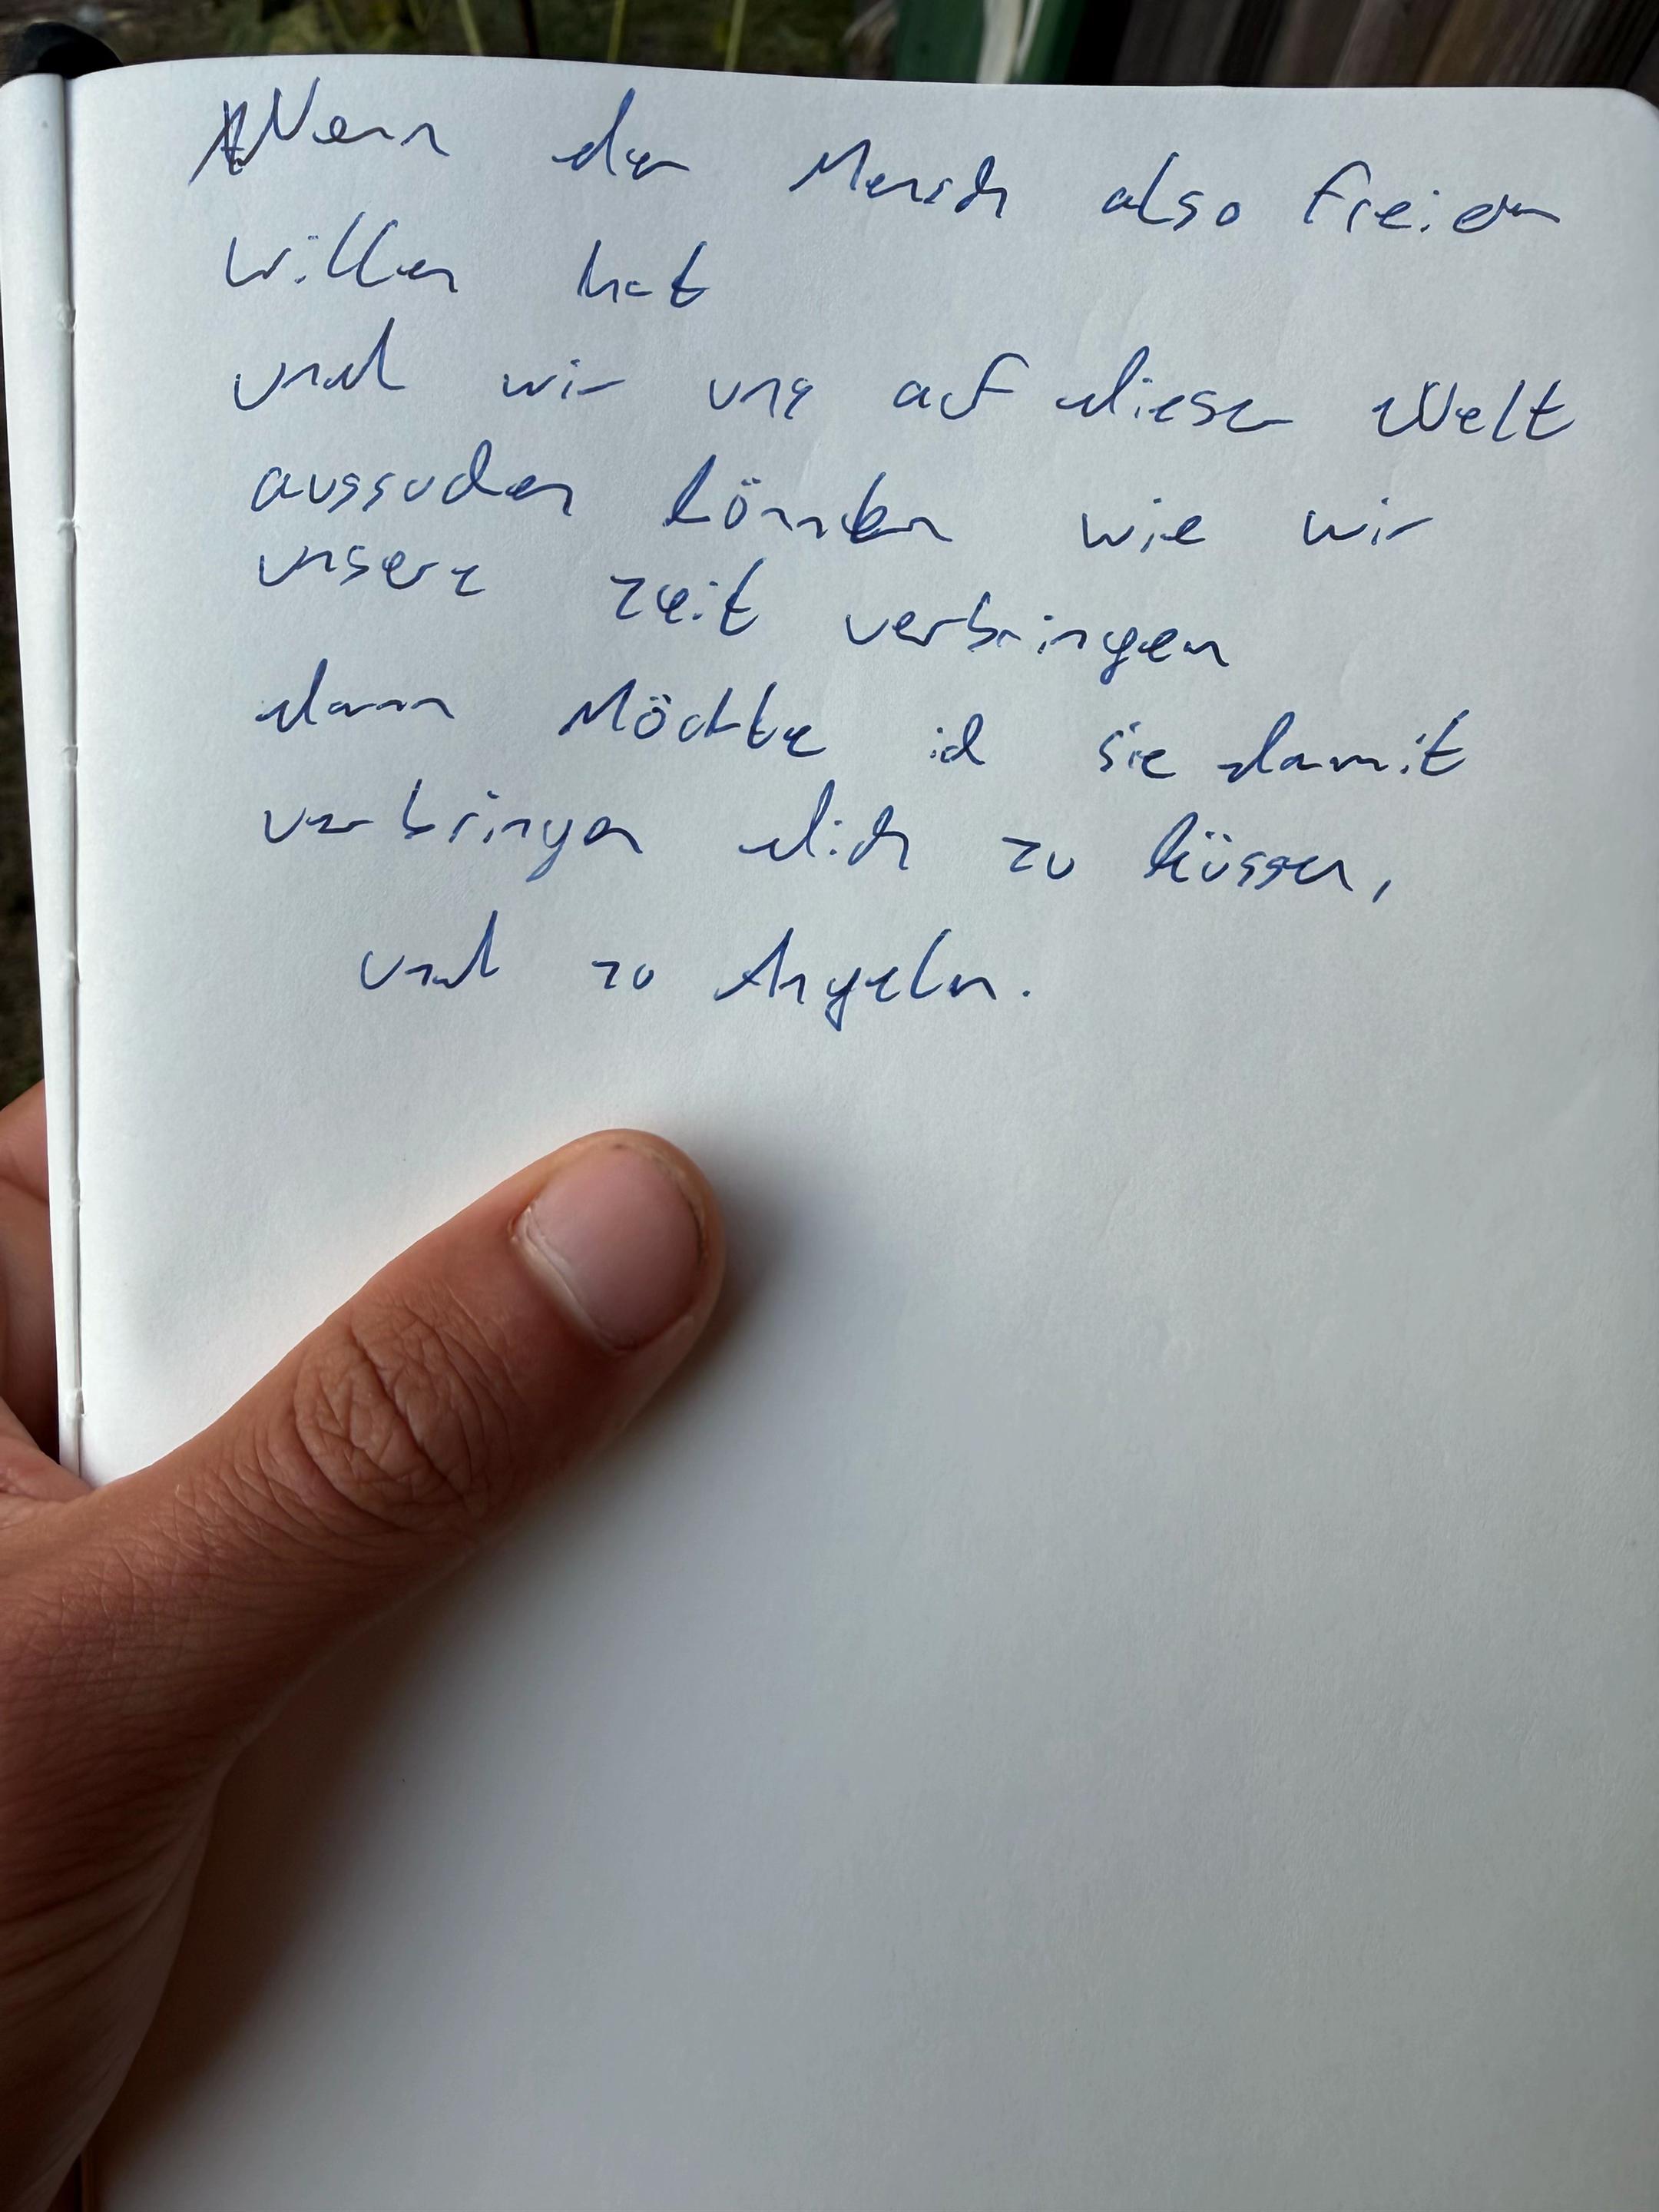 Wenn der Mensch also freien
Willen hat
und wir uns auf dieser Welt
aussuchen können wie wir
unsere zeit verbringen
dann Möchte ich sie damit
verbringen dich zu küssen,
und zu Angeln.